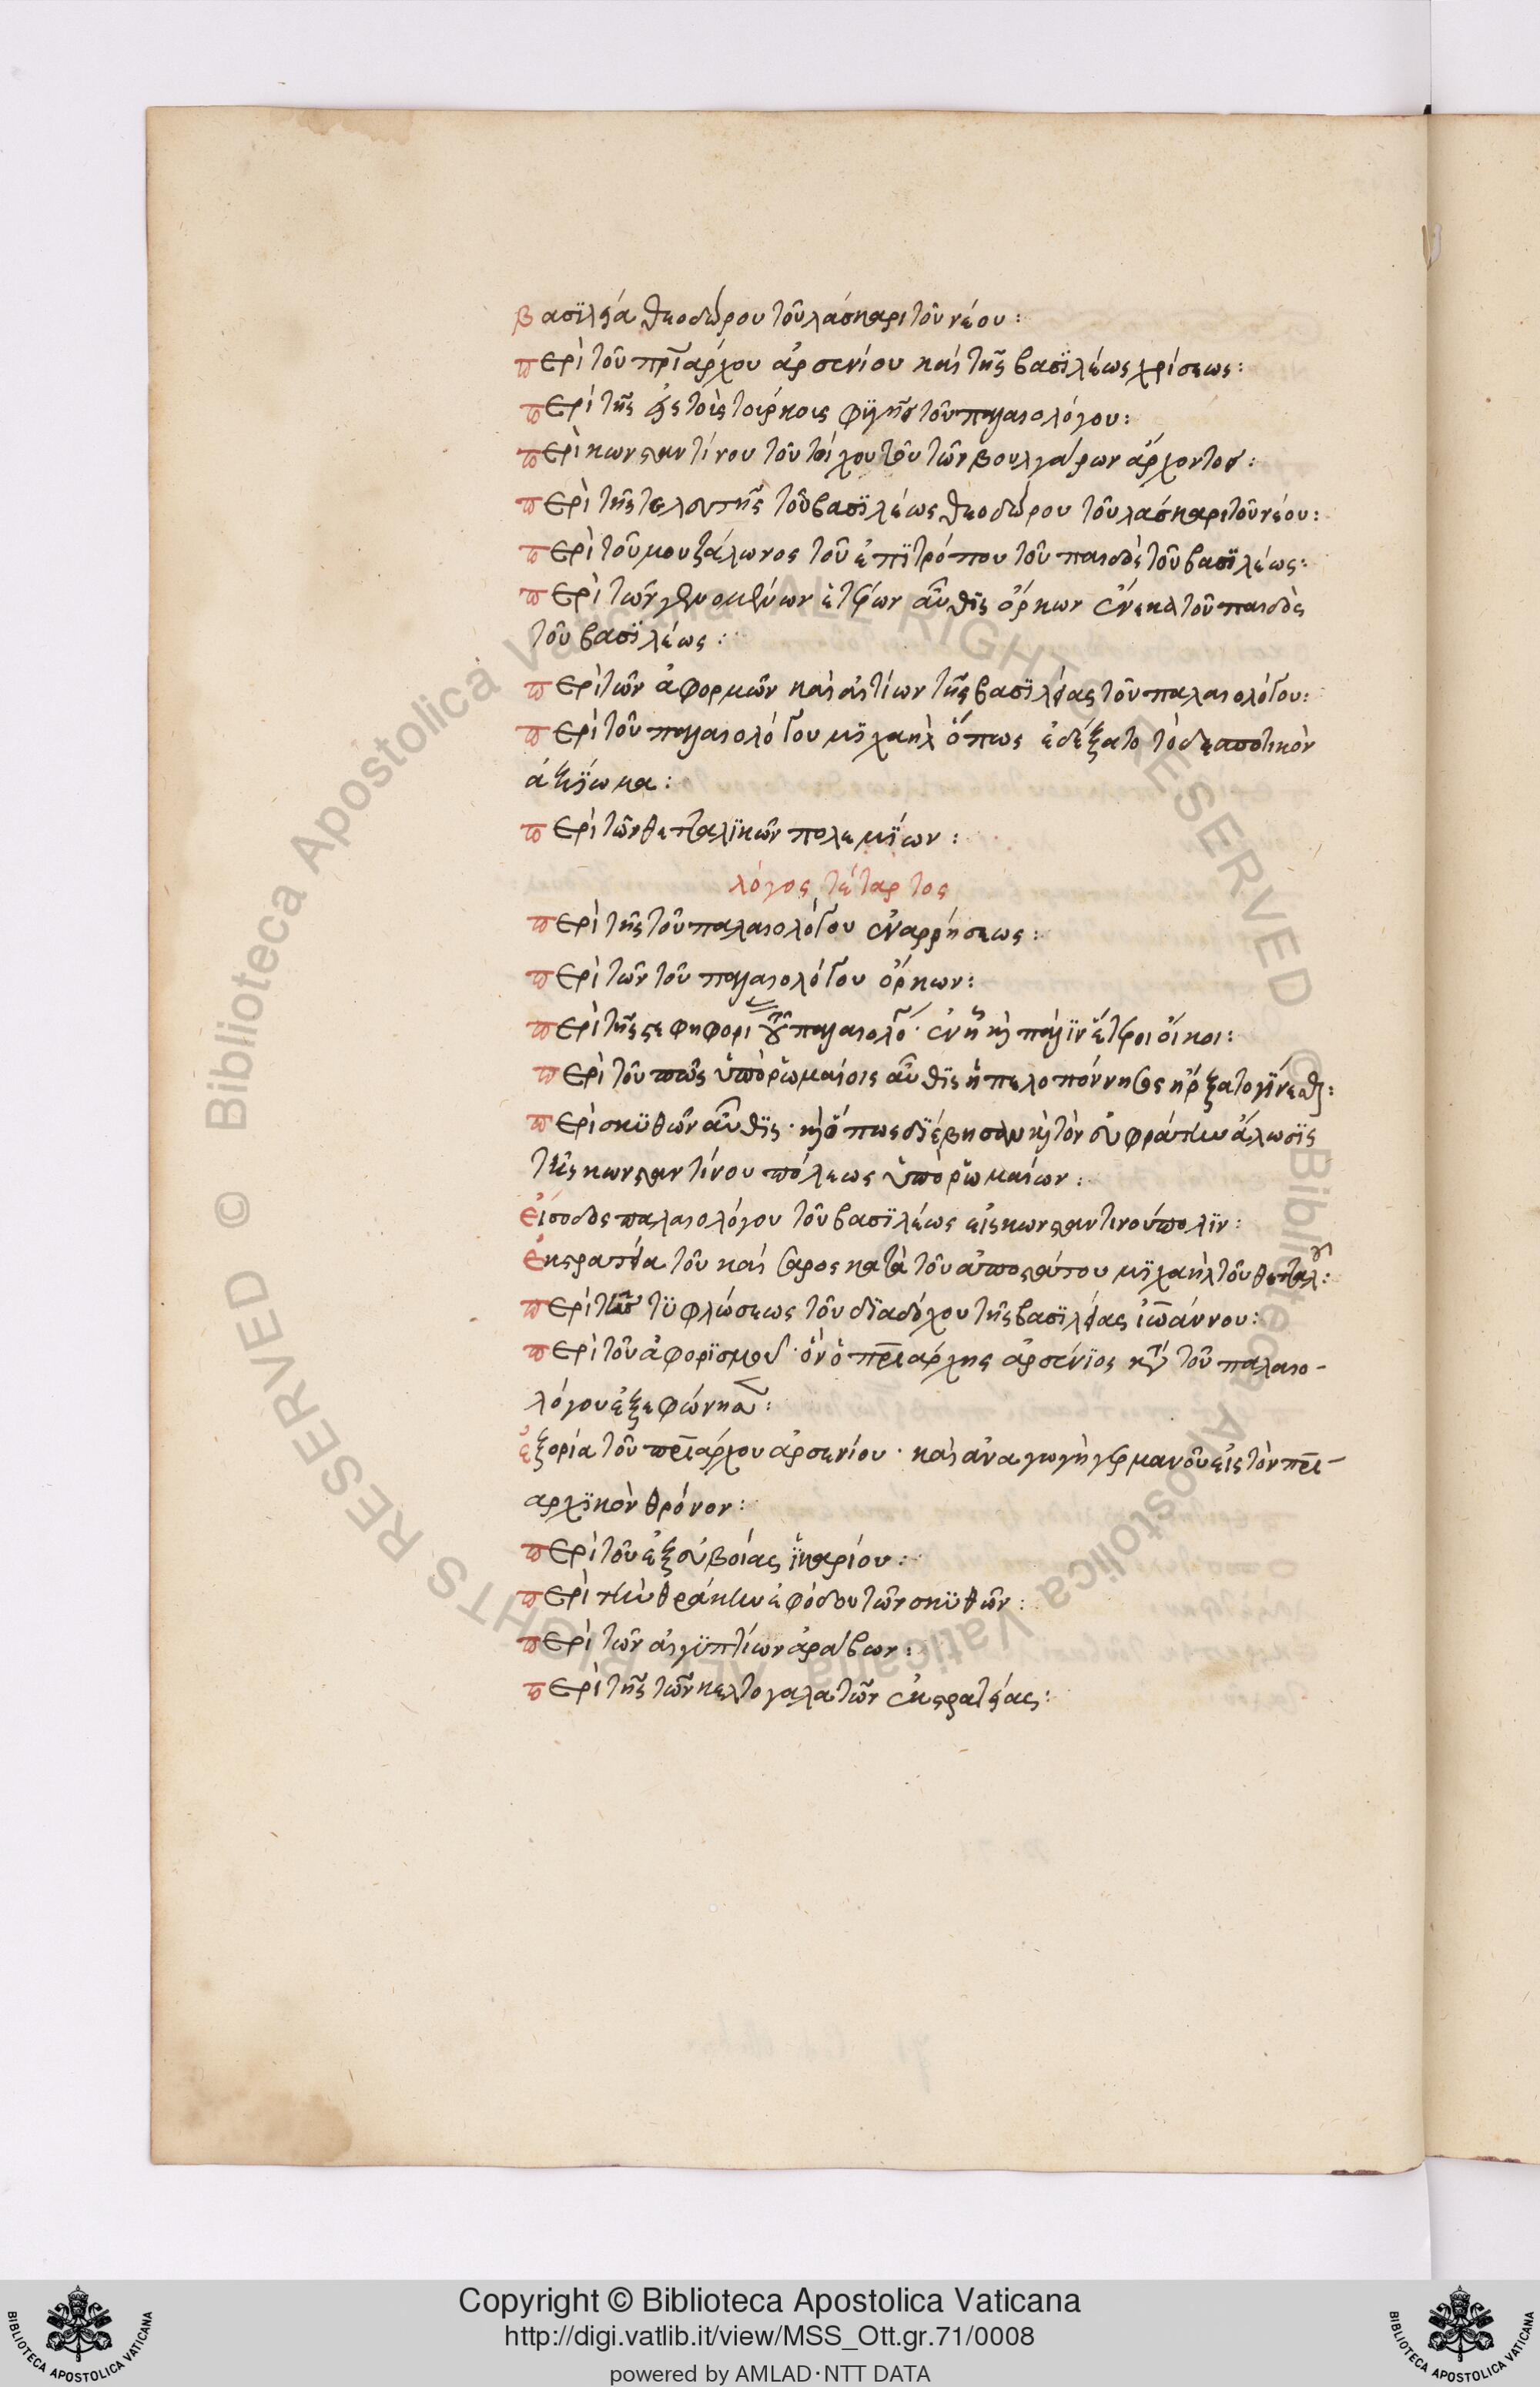 βασϊλεία θεοδώρου τοῦ λάσκαρι τοῦ νέου:
περὶ τοῦ πρϊάρχου ἀρσενίου καὶ τῆς βασϊλέως χρίσεως:
περὶ τῆς εἰς τοὺς τούρκους φϋγῆς τοῦ παλαιολόγου:
περὶ κωνσταντίνου τοῦ τοίχου τοῦ τῶν βουλγάρων ἄρχοντος:
περὶ τῆς τελευτῆς τοῦ βασϊλέως θεοδώρου τοῦ λάσκαρι τοῦ νέου:
περὶ τοῦ μουζάλωνος τοῦ ἐπϊτρόπου τοῦ παιδὸς τοῦ βασϊλέως:
περὶ τῶν γενομένων ἑτέρων αὖθϊς ὅρκων ἕνεκα τοῦ παιδὸς
τοῦ βασϊλέως:
περὶ τῶν ἀφορμῶν καὶ αἰτίων τῆς βασϊλείας τοῦ παλαιολόγου:
περὶ τοῦ παλαιολόγου μϊχαὴλ ὅπως ἐδέξατο τὸ δεσποτικὸν
ἀξϊωμα:
περὶ τῶν θετταλϊκῶν πολεμϊων:
λόγος τέταρτος
περὶ τῆς τοῦ παλαιολόγου ἀναρρήσεως:
περὶ τῶν τοῦ παλαιολόγου ὅρκων:
περὶ τῆς στεφηφορι τοῦ παλαιολό· ἐν ᾗ καὶ πάλϊν ἕτεροι ὅρκοι:
περὶ τοῦ πῶς ὑπὸ ῥωμαίοις αὖθϊς ἡ πελοπόννησος ἤρξατο γϊνεσθαι:
περὶ σκϋθῶν αὖθϊς· καὶ ὅπως δϊέβησαν καὶ τὸν εὐφράτην ἅλωσϊς
τῆς κωνσταντίνου πόλεως ὑπὸ ῥωμαίων:
εἴσοδος παλαιολόγου τοῦ βασϊλέως εἰς κωνσταντινούπολϊν:
ἐκστρατεία τοῦ καίσαρος κατὰ τοῦ ἀποστάτου μϊχαὴλ τοῦ θετταλ:
περὶ τῆς τϋφλώσεως τοῦ δϊαδόχου τῆς βασϊλείας ἰωάννου:
περὶ τοῦ ἀφορϊσμοῦ· ὃν ὁ πρϊάρχης ἀρσένϊος κατὰ τοῦ παλαιο-
λόγου ἐξεφώνησε:
ἐξορία τοῦ πρϊάρχου ἀρσενίου· καὶ ἀναγωγὴ γερμανοῦ εἰς τὸν πρϊ-
αρχϊκὸν θρόνον:
περὶ τοῦ ἐξ εὐβοίας ϊκαρίου:
περὶ τὴν θράκην ἐφόδου τῶν σκϋθῶν:
περὶ τῶν αἰγϋπτίων ἀράβων:
περὶ τῆς τῶν κελτογαλατῶν ἐκστρατείας:
Copyright © Biblioteca Apostolica Vaticana
http://digi.vatlib.it/view/MSS_Ott.gr.71/0008
powered by AMLAD·NTT DATA